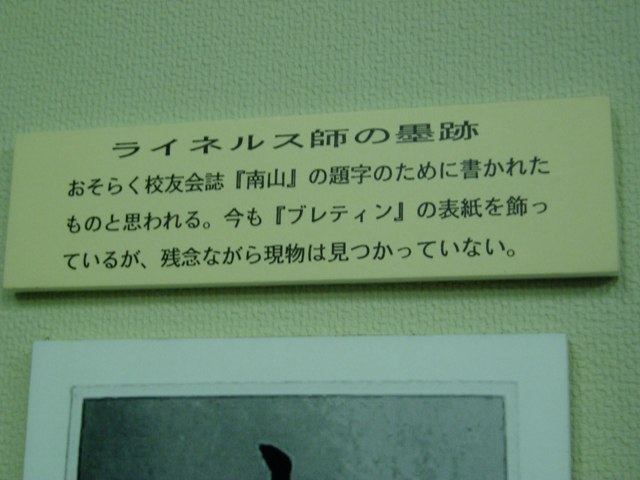 ライネルス師の墨跡
おそらく校友会誌『南山』の題字のために書かれた
ものと思われる。今も『ブレティン』の表紙を飾っ
ているが、残念ながら現物は見つかっていない。